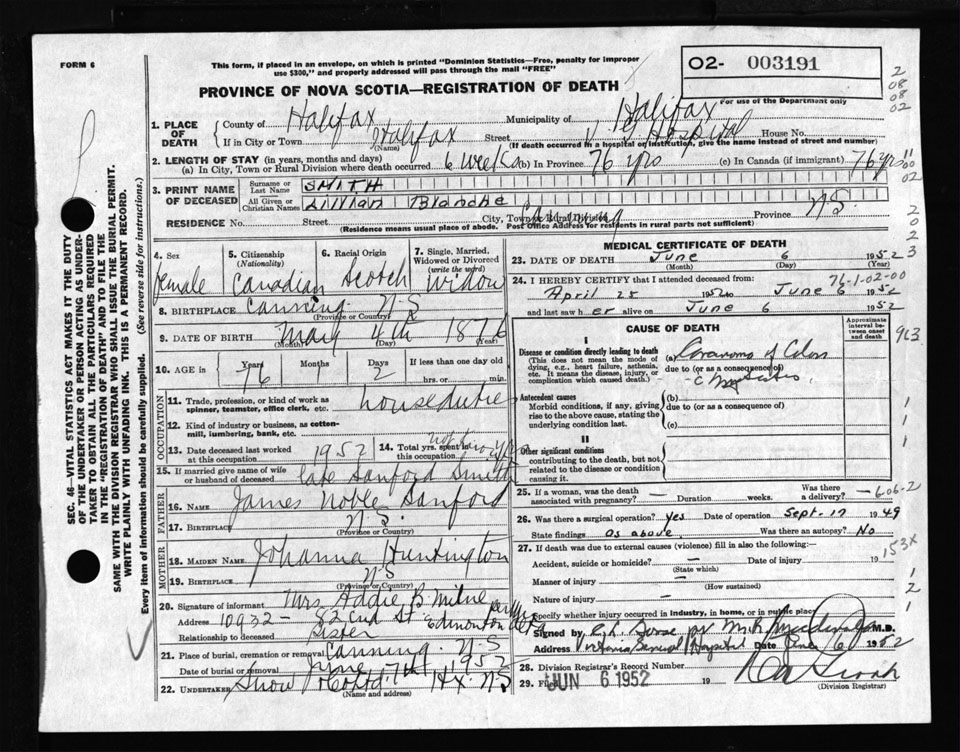 FORM 6
This form, if placed in an envelope, on which is printed "Dominion Statistics—Free, penalty for improper
use $300," and properly addressed will pass through the mail "FREE"
O2- 003191
For use of the Department only
PROVINCE OF NOVA SCOTIA—REGISTRATION OF DEATH
1. PLACE OF DEATH
County of Halifax Municipality of Halifax
If in City or Town Halifax Street V G Hospital House No.
(Name) (If death occurred in a hospital or institution, give the name instead of street and number)
2. LENGTH OF STAY (in years, months and days)
(a) In City, Town or Rural Division where death occurred 6 weeks (b) In Province 76 yrs (c) In Canada (if immigrant) 76 yrs
3. PRINT NAME OF DECEASED
Surname or Last Name SMITH
All Given or Christian Names Lillian Blanche
RESIDENCE No. Street City, Town or Rural Division Canning Province N.S.
(Residence means usual place of abode. Post Office Address for residents in rural parts not sufficient)
4. Sex Female
5. Citizenship (Nationality) Canadian
6. Racial Origin Scotch
7. Single, Married, Widowed or Divorced (write the word) Widow
8. BIRTHPLACE Canning N-S
(Province or Country)
9. DATE OF BIRTH May 4th 1876
(Month) (Day) (Year)
10. AGE in Years 76 Months 1 Days 2 If less than one day old
hrs. or min.
OCCUPATION
11. Trade, profession, or kind of work as
spinner, teamster, office clerk, etc. house duties
12. Kind of industry or business, as cotton-
mill, lumbering, bank, etc.
13. Date deceased last worked
at this occupation 1952
14. Total yrs. spent in
this occupation
15. If married give name of wife
or husband of deceased late Sanford Smith
FATHER
16. NAME James Noble Sanford
17. BIRTHPLACE N.S.
(Province or Country)
MOTHER
18. MAIDEN NAME Johanna Huntington
19. BIRTHPLACE N S
(Province or Country)
20. Signature of informant Mrs. Addie B. Milne
Address 10932 - 82 nd St Edmonton Alta
Relationship to deceased sister
21. Place of burial, cremation or removal Canning N-S
Date of burial or removal June 7th 1952
22. UNDERTAKER Snow & Co Ltd Hx N S
(Name and address)
MEDICAL CERTIFICATE OF DEATH
23. DATE OF DEATH June 6 1952
(Month) (Day) (Year)
76-1-02-00
24. I HEREBY CERTIFY that I attended deceased from:
April 25 1952 to June 6 1952
and last saw her alive on June 6 1952
CAUSE OF DEATH
Approximate interval between onset and death
I
Disease or condition directly leading to death
(This does not mean the mode of dying, e.g., heart failure, asthenia, etc. It means the disease, injury, or complication which caused death.)
(a) Carcinoma of Colon
due to (or as a consequence of)
Antecedent causes
Morbid conditions, if any, giving rise to the above cause, stating the underlying condition last.
(b)
due to (or as a consequence of)
(c)
II
Other significant conditions
contributing to the death, but not related to the disease or condition causing it.
25. If a woman, was the death
associated with pregnancy? — Duration weeks. Was there a delivery? —
26. Was there a surgical operation? Yes Date of operation Sept. 17 1949
State findings as above Was there an autopsy? No
27. If death was due to external causes (violence) fill in also the following:—
Accident, suicide or homicide? — Date of injury 19
(State which)
Manner of injury —
(How sustained)
Nature of injury —
Specify whether injury occurred in industry, in home, or in public place
Signed by M.D.
Address Victoria General Hospital Date June 6 1952
28. Division Registrar's Record Number
29. Filed JUN 6 1952 19
(Division Registrar)
SEC. 46—VITAL STATISTICS ACT MAKES IT THE DUTY
OF THE UNDERTAKER OR PERSON ACTING AS UNDER-
TAKER TO OBTAIN ALL THE PARTICULARS REQUIRED
IN THE "REGISTRATION OF DEATH" AND TO FILE THE
SAME WITH THE DIVISION REGISTRAR WHO SHALL ISSUE THE BURIAL PERMIT.
WRITE PLAINLY WITH UNFADING INK. THIS IS A PERMANENT RECORD.
Every item of information should be carefully supplied. (See reverse side for instructions.)
2
08
08
02
11
00
02
2
0
2
2
3
963
1
1
1
606-2
153x
1
2
1